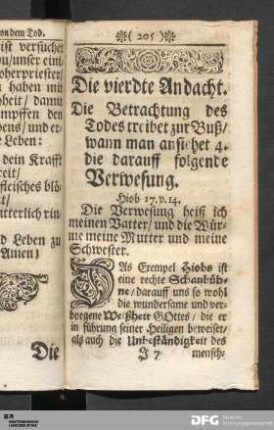 von dem Tod.
ist versuchet
ohepriester/
haben mit
heit/ damit
mpffen den
bens/ und er-
e Leben:
dein Krafft
fleisches blö-
d Leben zu
Amen)
Die
(205)
Die vierdte Andacht.
Die Betrachtung des
Todes treibet zur Buß/
wann man ansihet 4.
die darauff folgende
Verwesung.
Hiob 17. v. 14.
Die Verwesung heiß ich
meinen Vatter/ und die Wür-
me meine Mutter und meine
Schwester.
DAs Exempel Hiobs ist
eine rechte Schaubüh-
ne/ darauff uns so wohl
die wundersame und ver-
borgene Weißheit GOttes/ die er
in führung seiner Heiligen beweiset/
als auch die Unbeständigkeit des
J 7 mensch-
DFG